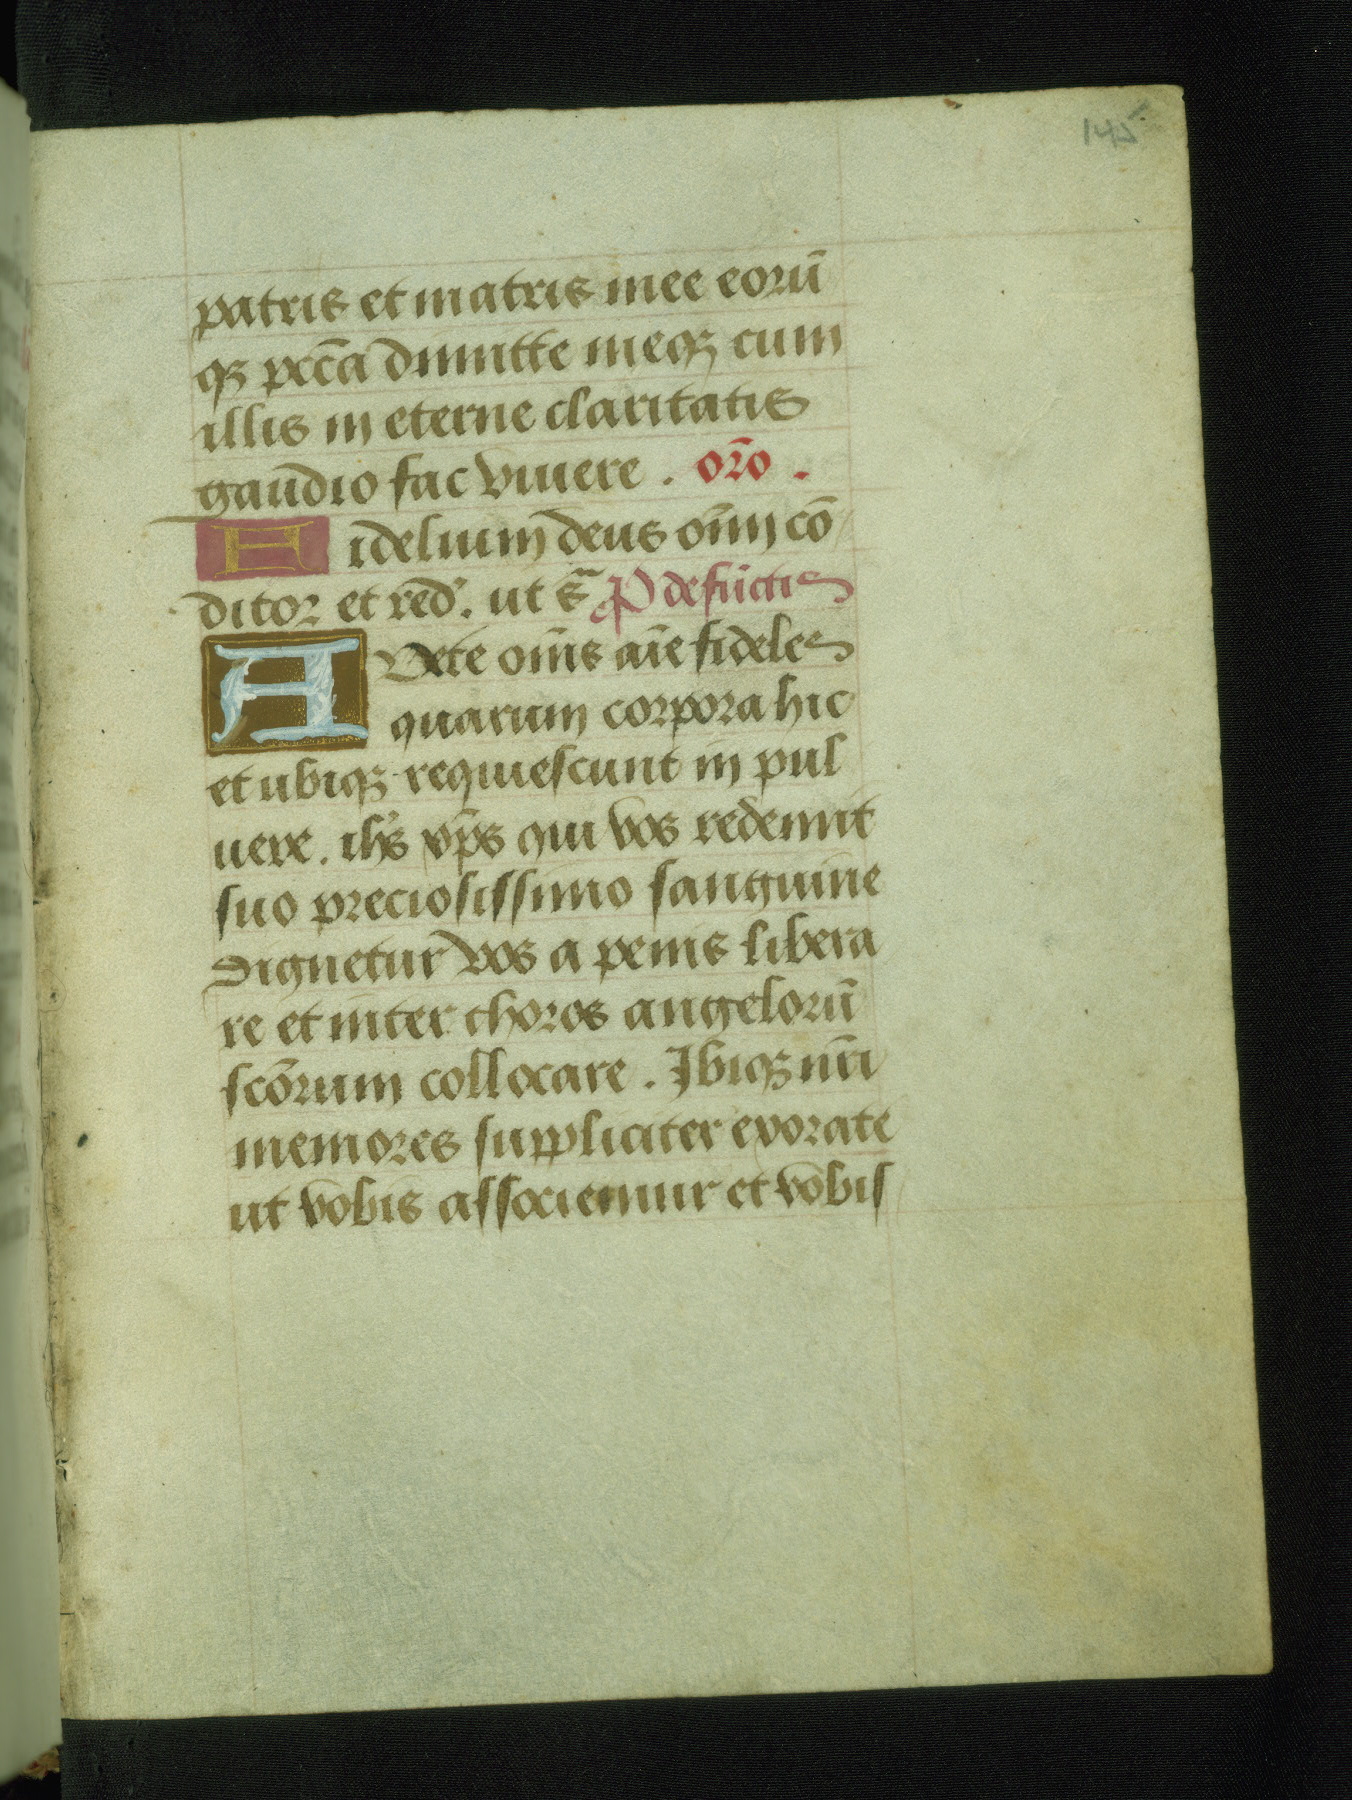 145
patris et matris mee eorū
qꝫ pctā dimitte meqꝫ cum
illis in eterne claritatis
gaudio fac viuere . or̄o .
Fidelium deus om̄i cō
ditor et red̄. ut sͣ P defūctis
Auete om̄s aīe fideles
quarum corpora hic
et ubiqꝫ requiescunt in pul
uere. ihs̄ xp̄s qui vos redemit
suo preciosissimo sanguine
dignetur vos a penis libera
re et inter choros angelorū
scōrum collocare . Ibiqꝫ nr̄i
memores suppliciter exorate
ut vobis associemur et vobis